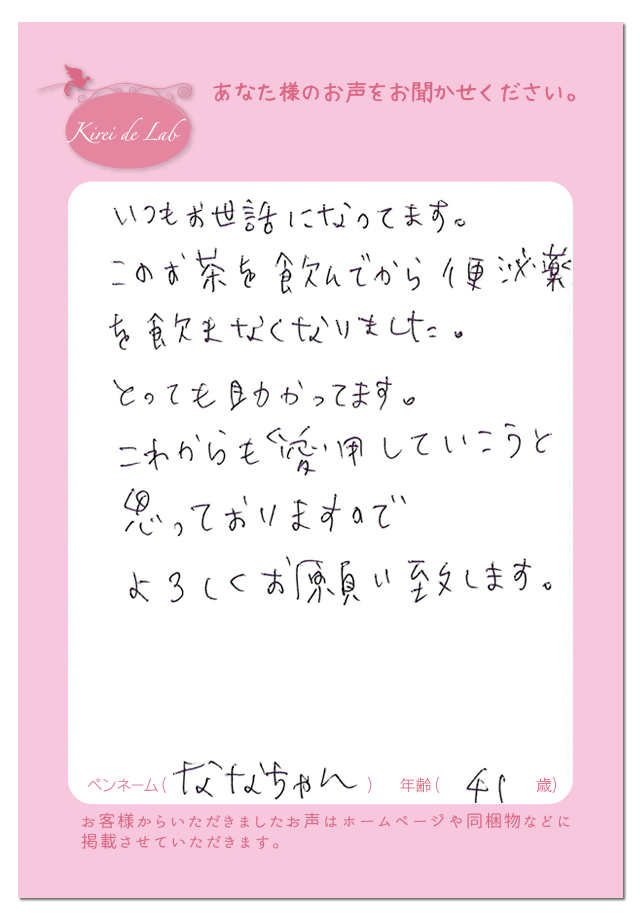 あなた様のお声をお聞かせください。
Kirei de Lab
いつもお世話になってます。
このお茶を飲んでから便泌薬
を飲まなくなりました。
とっても助かってます。
これからも愛用していこうと
思っておりますので
よろしくお願い致します。
ペンネーム(ななちゃん) 年齢(41歳)
お客様からいただきましたお声はホームページや同梱物などに
掲載させていただきます。